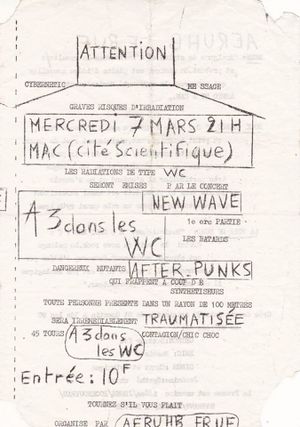 ATTENTION
CYBERNETIC MESSAGE
GRAVES RISQUES D'IRRADIATION
MERCREDI 7 MARS 21H
MAC (cité Scientifique)
LES RADIATIONS DE TYPE WC
SERONT EMISES PAR LE CONCERT
NEW WAVE
A 3 dans les
WC
1e ere PARTIE
LES BATARDS
DANGEREUX MUTANTS AFTER-PUNKS
QUI FRAPPENT A COUP D E
SYNTHETISEURS
TOUTE PERSONNE PRESENTE DANS UN RAYON DE 100 METRES
SERA IRREMEDIABLEMENT TRAUMATISÉE
45 TOURS A 3 dans les WC CONTAGION/CHIC CHOC
Entrée: 10F
TOURNEZ S'IL VOUS PLAIT
ORGANISE PAR